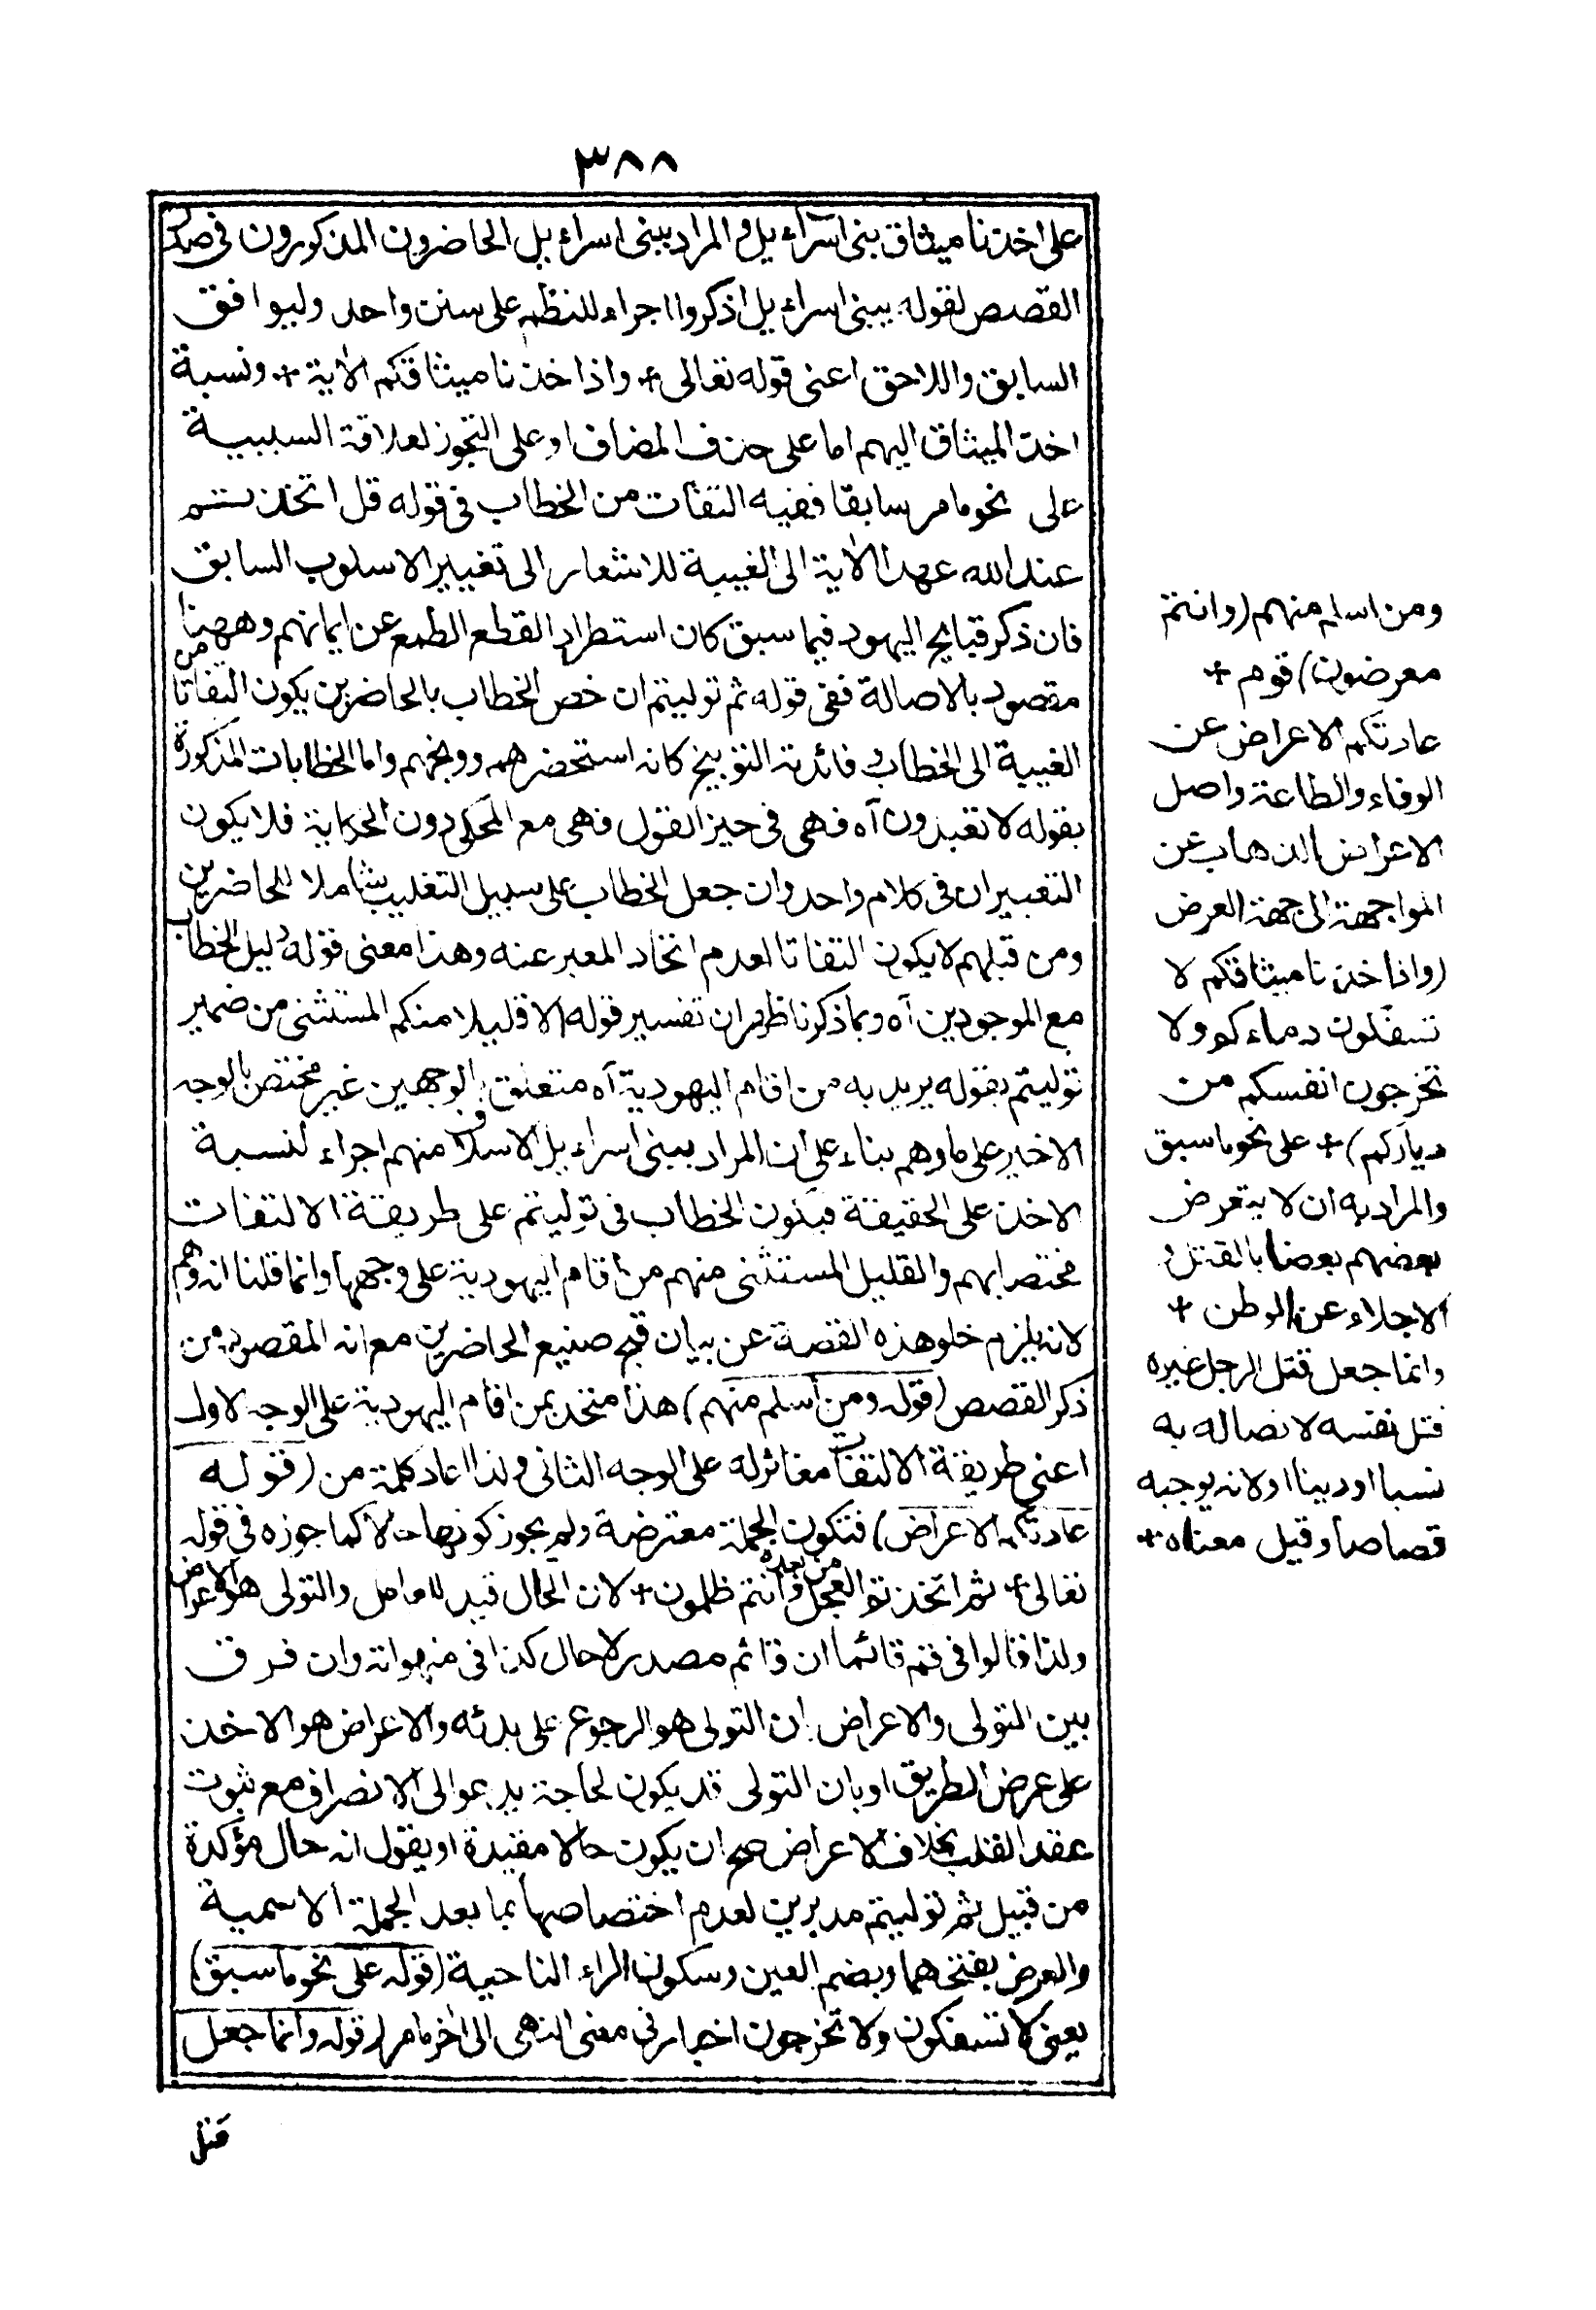 ٣٨٨
على اخذنا ميثاق بنى اسرائيل والمراد ببنى اسرائيل الحاضرون المذكورون فى صدر
القصص لقوله يبنى اسرائيل اذكروا اجراء للنظم على سنن واحد وليوافق
السابق واللاحق اعنى قوله تعالى + واذ اخذنا ميثاقكم الاية + ونسبة
اخذ الميثاق اليهم اما على حذف المضاف او على التجوز لعلاقة السببية
على نحو ما مر سابقا ففيه التفات من الخطاب فى قوله قل اتخذتم
عند الله عهدا الاية الى الغيبة للاشعار الى تغيير الاسلوب السابق
فان ذكر قبايح اليهود فيما سبق كان استطراد القطع الطمع عن ايمانهم وههنا
مقصود بالاصالة ففى قوله ثم توليتم ان خص الخطاب بالحاضرين يكون التفاتا من
الغيبة الى الخطاب وفائدته التوبيخ كانه استحضرهم ووبخهم واما الخطابات المذكورة
بقوله لا تعبدون آه فهى فى حيز القول فهى مع المحكى دون الحكاية فلا يكون
التعبيران فى كلام واحد وان جعل الخطاب على سبيل التغليب شاملا للحاضرين
ومن قبلهم لا يكون التفاتا لعدم اتحاد المعبر عنه وهذا معنى قوله دليل الخطاب
مع الموجودين آه وبما ذكرنا ظهر ان تفسير قوله الا قليلا منكم المستثنى من ضمير
توليتم بقوله يريد به من اقام اليهودية آه متعلق بالوجهين غير مختص بالوجه
الاخير على ما وهم بناء على ان المراد ببنى اسرائيل الاسلاف منهم اجراء لنسبة
الاخذ على الحقيقة فيكون الخطاب فى توليتم على طريقة الالتفات
مختصا بهم والقليل المستثنى منهم من اقام اليهودية على وجهها وانما قلنا انه وهم
لانه يلزم خلو هذه القصة عن بيان قبح صنيع الحاضرين مع انه المقصود من
ذكر القصص (قوله ومن اسلم منهم) هذا متحد بمن اقام اليهودية على الوجه الاول
اعنى طريقة الالتفات مغائر له على الوجه الثانى ولذا اعاد كلمة من (قوله
عادتكم الاعراض) فتكون الجملة معترضة ولم يجوز كونها حالا كما جوزه فى قوله
تعالى + ثم اتخذتم العجل من بعده وانتم ظلمون + لان الحال قيد للعامل والتولى هو الاعراض
ولذا قالوا فى قم قائما ان قائم مصدر لا حال كذا فى منهواته وان فرق
بين التولى والاعراض بان التولى هو الرجوع على بدئه والاعراض هو الاخذ
على عرض الطريق او بان التولى قد يكون لحاجة يدعو الى الانصراف مع ثبوت
عقد القلب بخلاف الاعراض صح ان يكون حالا مقيدة او يقول انه حال مؤكدة
من قبيل ثم توليتم مدبرين لعدم اختصاصها بما بعد الجملة الاسمية
والعرض بفتحهما وبضم العين وسكون الراء الناحية (قوله على نحو ما سبق)
يعنى لا تسفكون ولا تخرجون اخبار فى معنى النهى الى اخر ما مر (قوله وانما جعل
قتل
ومن اسلم منهم (وانتم
معرضون) قوم +
عادتكم الاعراض عن
الوفاء والطاعة واصل
الاعراض الذهاب عن
المواجهة الى جهة العرض
(واذ اخذنا ميثاقكم لا
تسفكون دماءكم ولا
تخرجون انفسكم من
دياركم) + على نحو ما سبق
والمراد به ان لا يتعرض
بعضهم بعضا بالقتل و
الاجلاء عن الوطن +
وانما جعل قتل الرجل غيره
قتل نفسه لاتصاله به
نسبا او دينا او لانه يوجبه
قصاصا وقيل معناه +